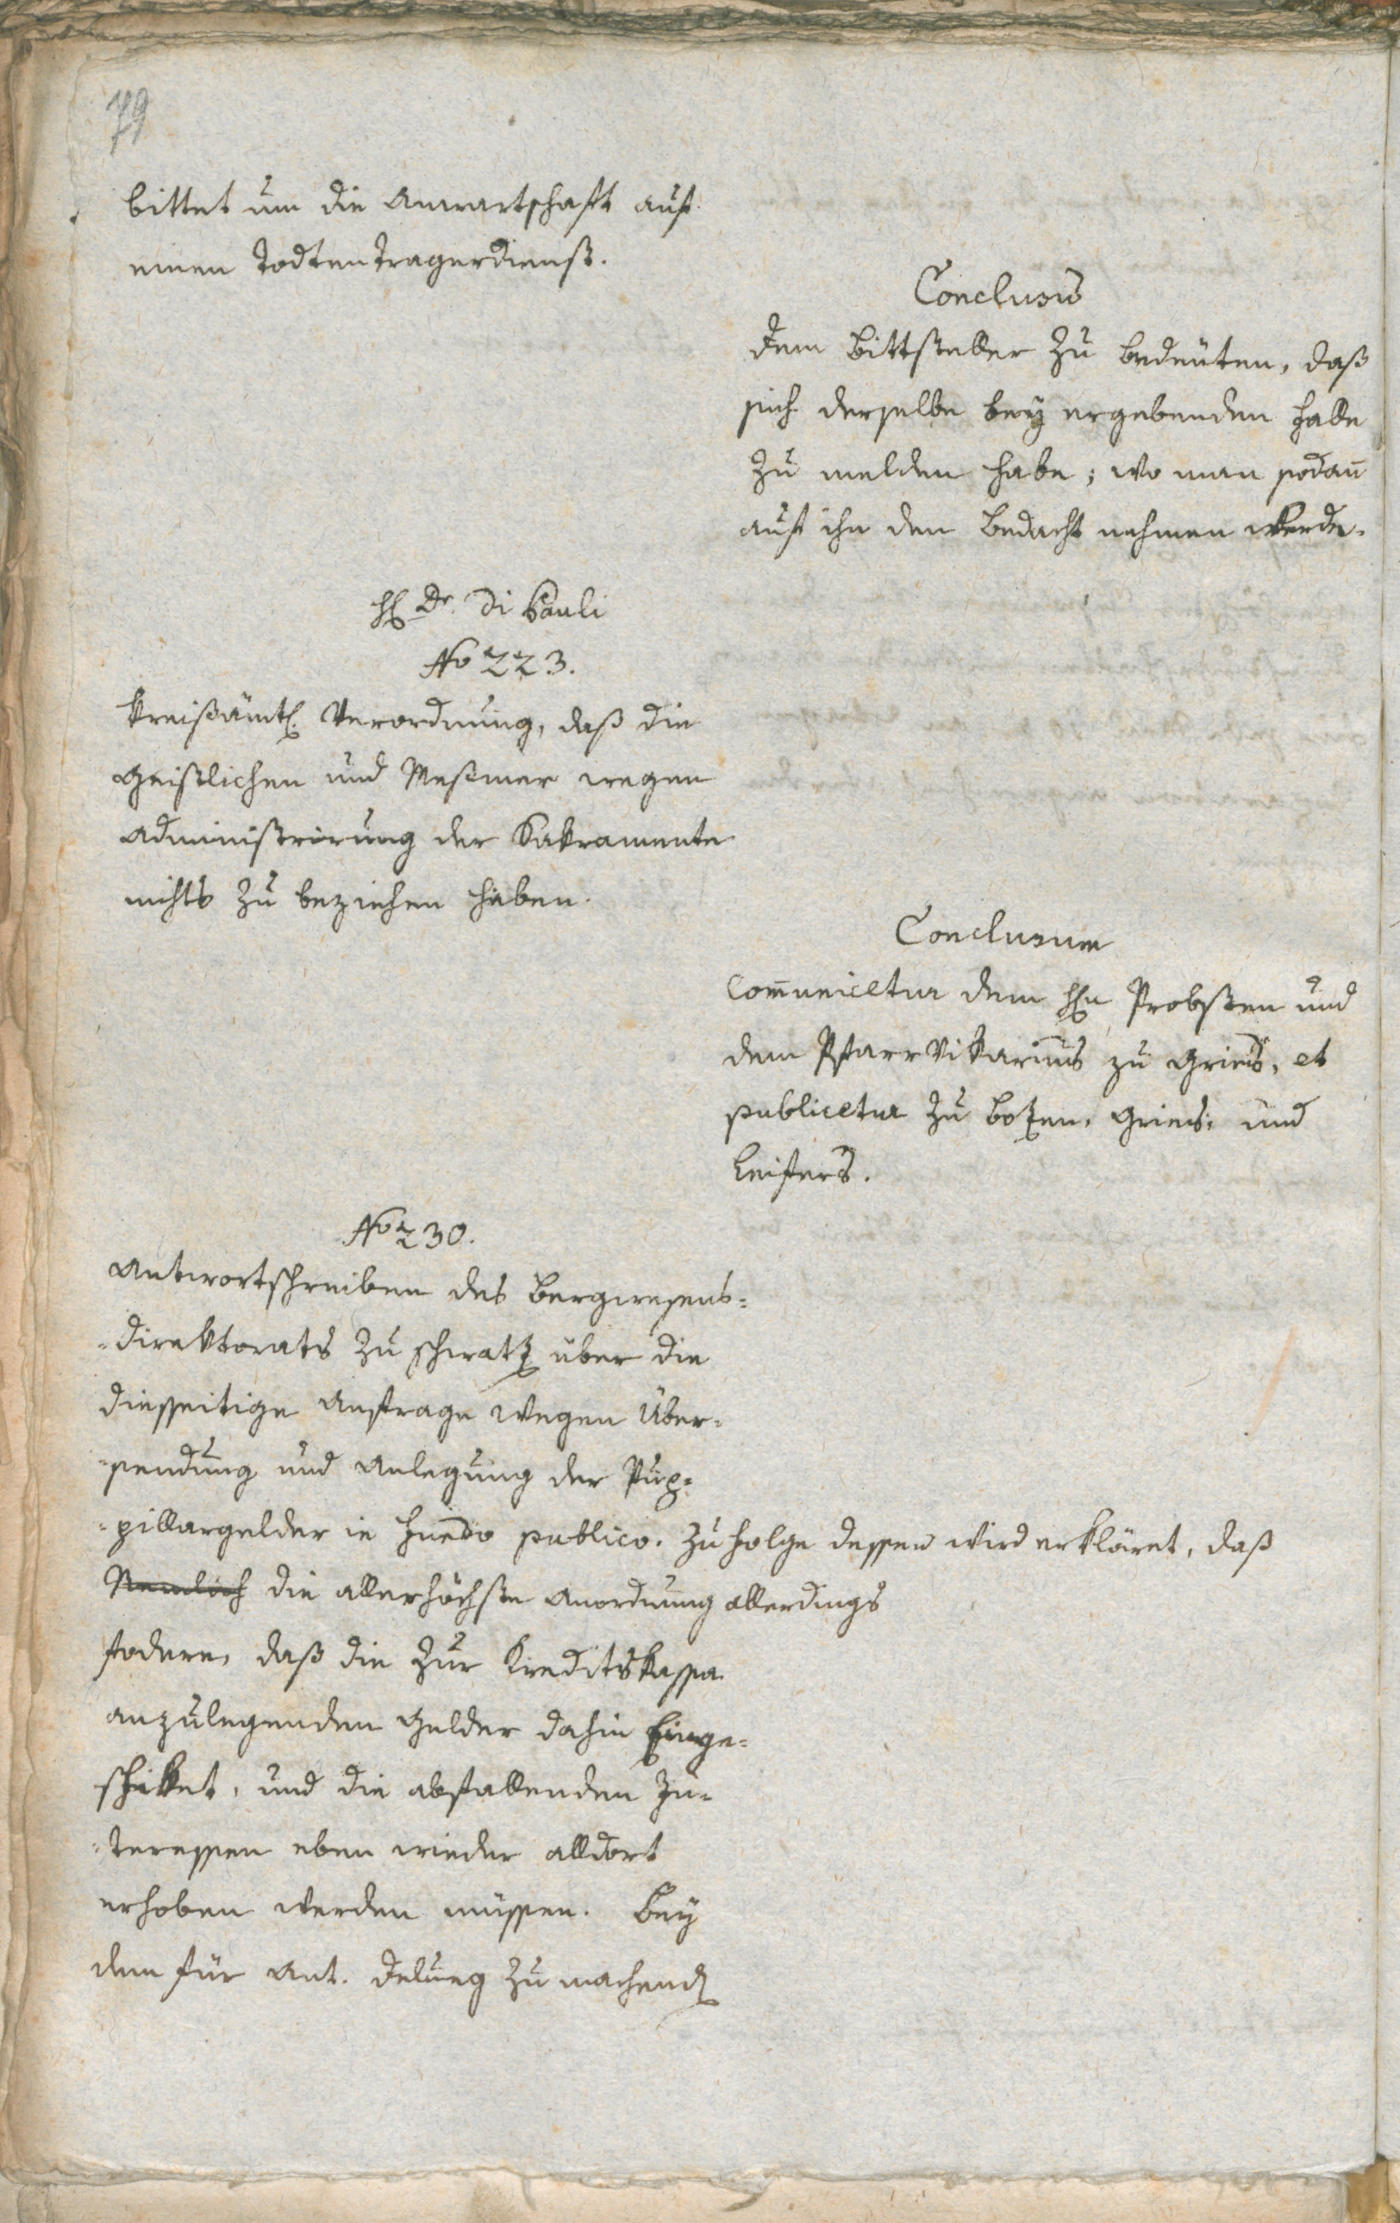 79
bittet um die Anwartschaft auf
einen Todtentragerdienst.
Conclusum
dem Bittsteller zu bedeuten, daß
sich derselbe bey ergebenden Falle
zu melden habe; wo man sodan̄
auf ihn den Bedacht nehmen werde.
H. Dr. Di Pauli
No 223.
Kreißämtl. Verordnung, daß die
Geistlichen und Meßmer wegen
Administrirung der Sakramente
nichts zu beziehen haben.
Conclusum
Com̄unicetur dem Hn Probsten und
dem Pfarrvikarius zu Gries, et
publicetur zu Bozen, Gries, und
Leifers.
No 230.
Antwortschreiben des Bergwesens=
=direktorats zu Schwatz über die
diesseitige Anfrage wegen Über=
=sendung und Anlegung der Pup=
=pillargelder in Fundo publico. Zu Folge dessen wird erkläret, daß
Nemlich die allerhöchste Anordnung allerdings
fodere, daß die zur Kreditskassa
anzulegenden Gelder dahin Einge=
schikket, und die abfallenden In=
=teressen eben wieder alldort
erhoben werden müssen. Bey
dem für Ant. Delueg zu machend